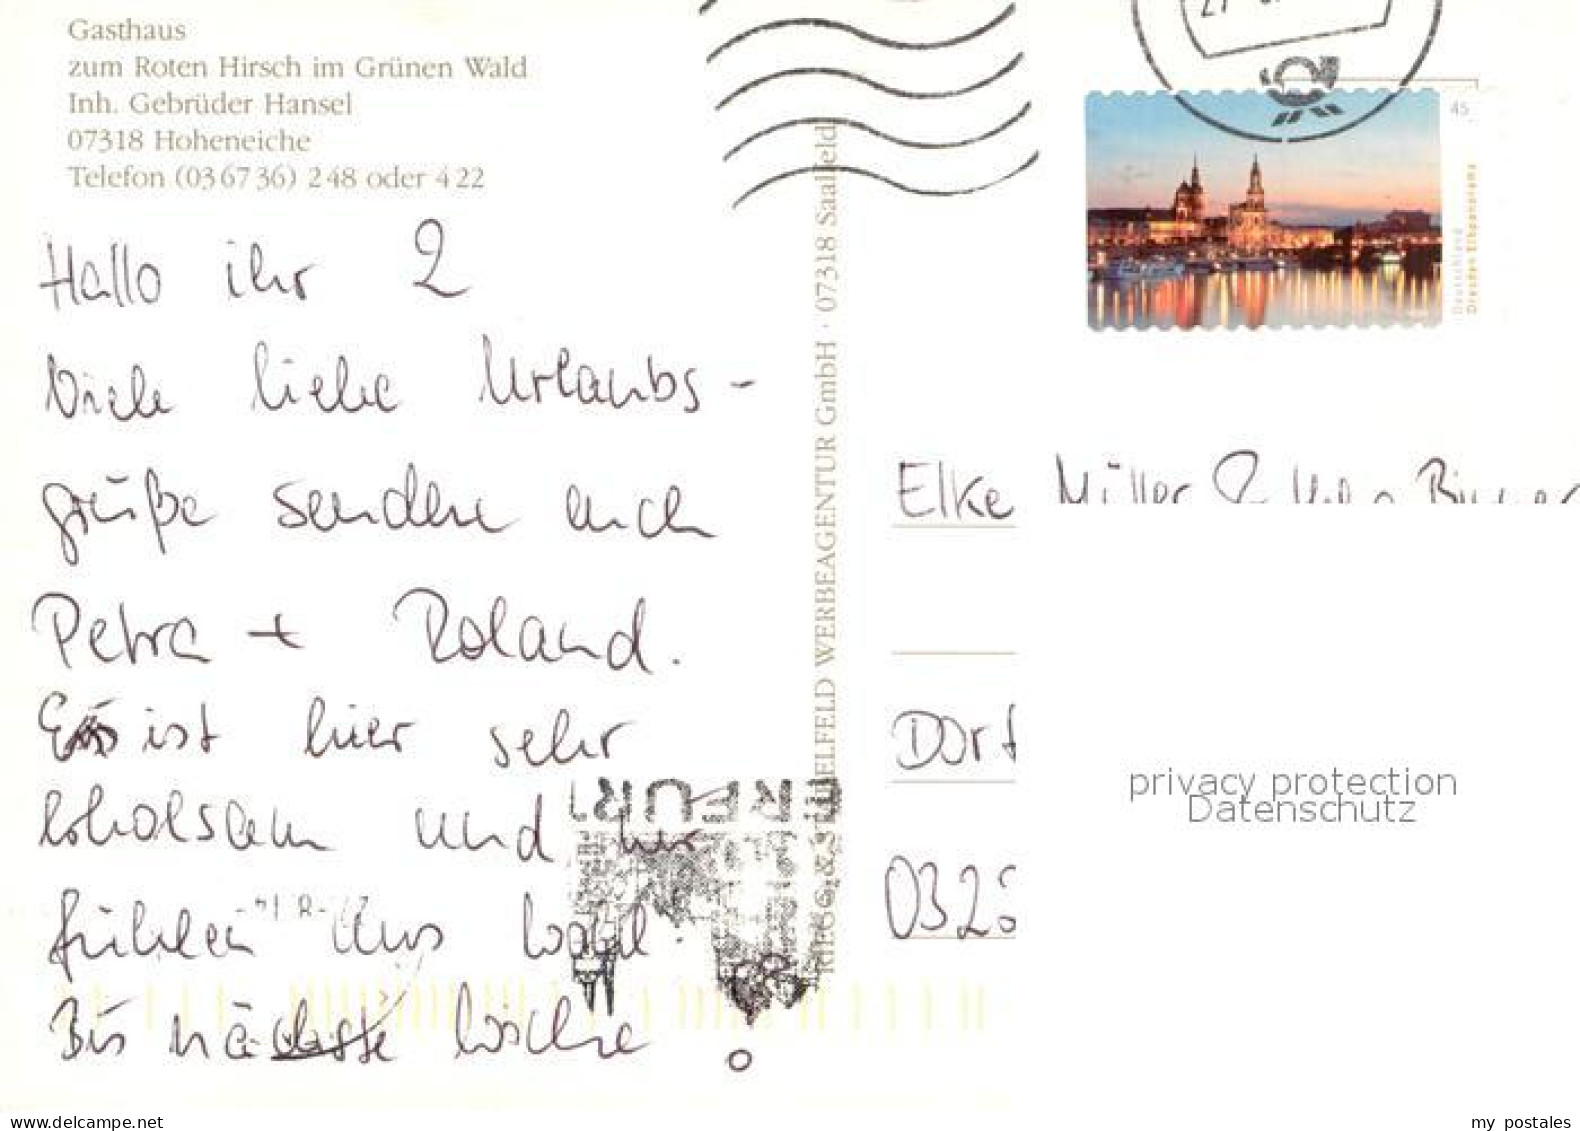 Gasthaus
zum Roten Hirsch im Grünen Wald
Inh. Gebrüder Hansel
07318 Hoheneiche
Telefon (03 67 36) 2 48 oder 4 22
Hallo ihr 2
Viele liebe Urlaubs-
grüße senden euch
Petra + Roland.
Es ist hier sehr
erholsam und wir
fühlen uns wohl.
Bis nächste Woche
RIEGG & STIELFELD WERBEAGENTUR GmbH · 07318 Saalfeld
45
Deutschland
Dresden Elbpanorama
Elke Müller
Dorf
032
privacy protection
Datenschutz
delcampe.net
my_postales